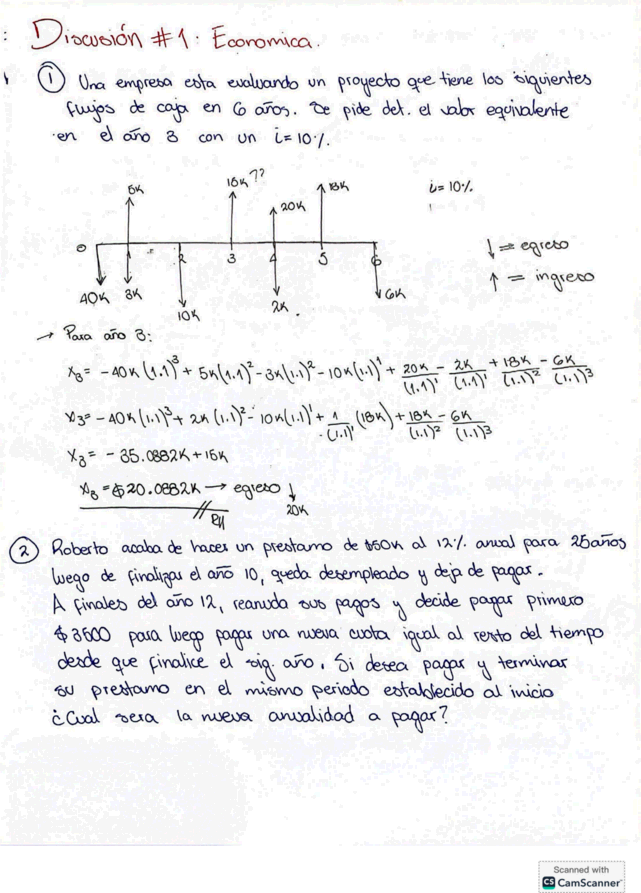 Discusión #1: Economica.
① Una empresa esta evaluando un proyecto que tiene los siguientes
flujos de caja en 6 años. Se pide det. el valor equivalente
en el año 3 con un i=10%.
5K
15K ??
20K
18K
i=10%
0
2
3
4
5
6
↓ = egreso
↑ = ingreso
40K
3K
10K
2K
6K
→ Para año 3:
X₃ = -40K(1.1)³ + 5K(1.1)² - 3K(1.1)² - 10K(1.1)¹ + 20K/(1.1)¹ - 2K/(1.1)¹ + 18K/(1.1)² - 6K/(1.1)³
X₃ = -40K(1.1)³ + 2K(1.1)² - 10K(1.1)¹ + 1/(1.1)¹ (18K) + 18K/(1.1)² - 6K/(1.1)³
X₃ = - 35.0882K + 15K
X₃ = $20.0882K → egreso ↓
20K
R//
② Roberto acaba de hacer un prestamo de $50K al 12% anual para 25 años
luego de finalizar el año 10, queda desempleado y deja de pagar.
A finales del año 12, reanuda sus pagos y decide pagar primero
$3500 para luego pagar una nueva cuota igual al resto del tiempo
desde que finalice el sig. año. Si desea pagar y terminar
su prestamo en el mismo periodo establecido al inicio
¿Cual sera la nueva anualidad a pagar?
Scanned with
CS CamScanner